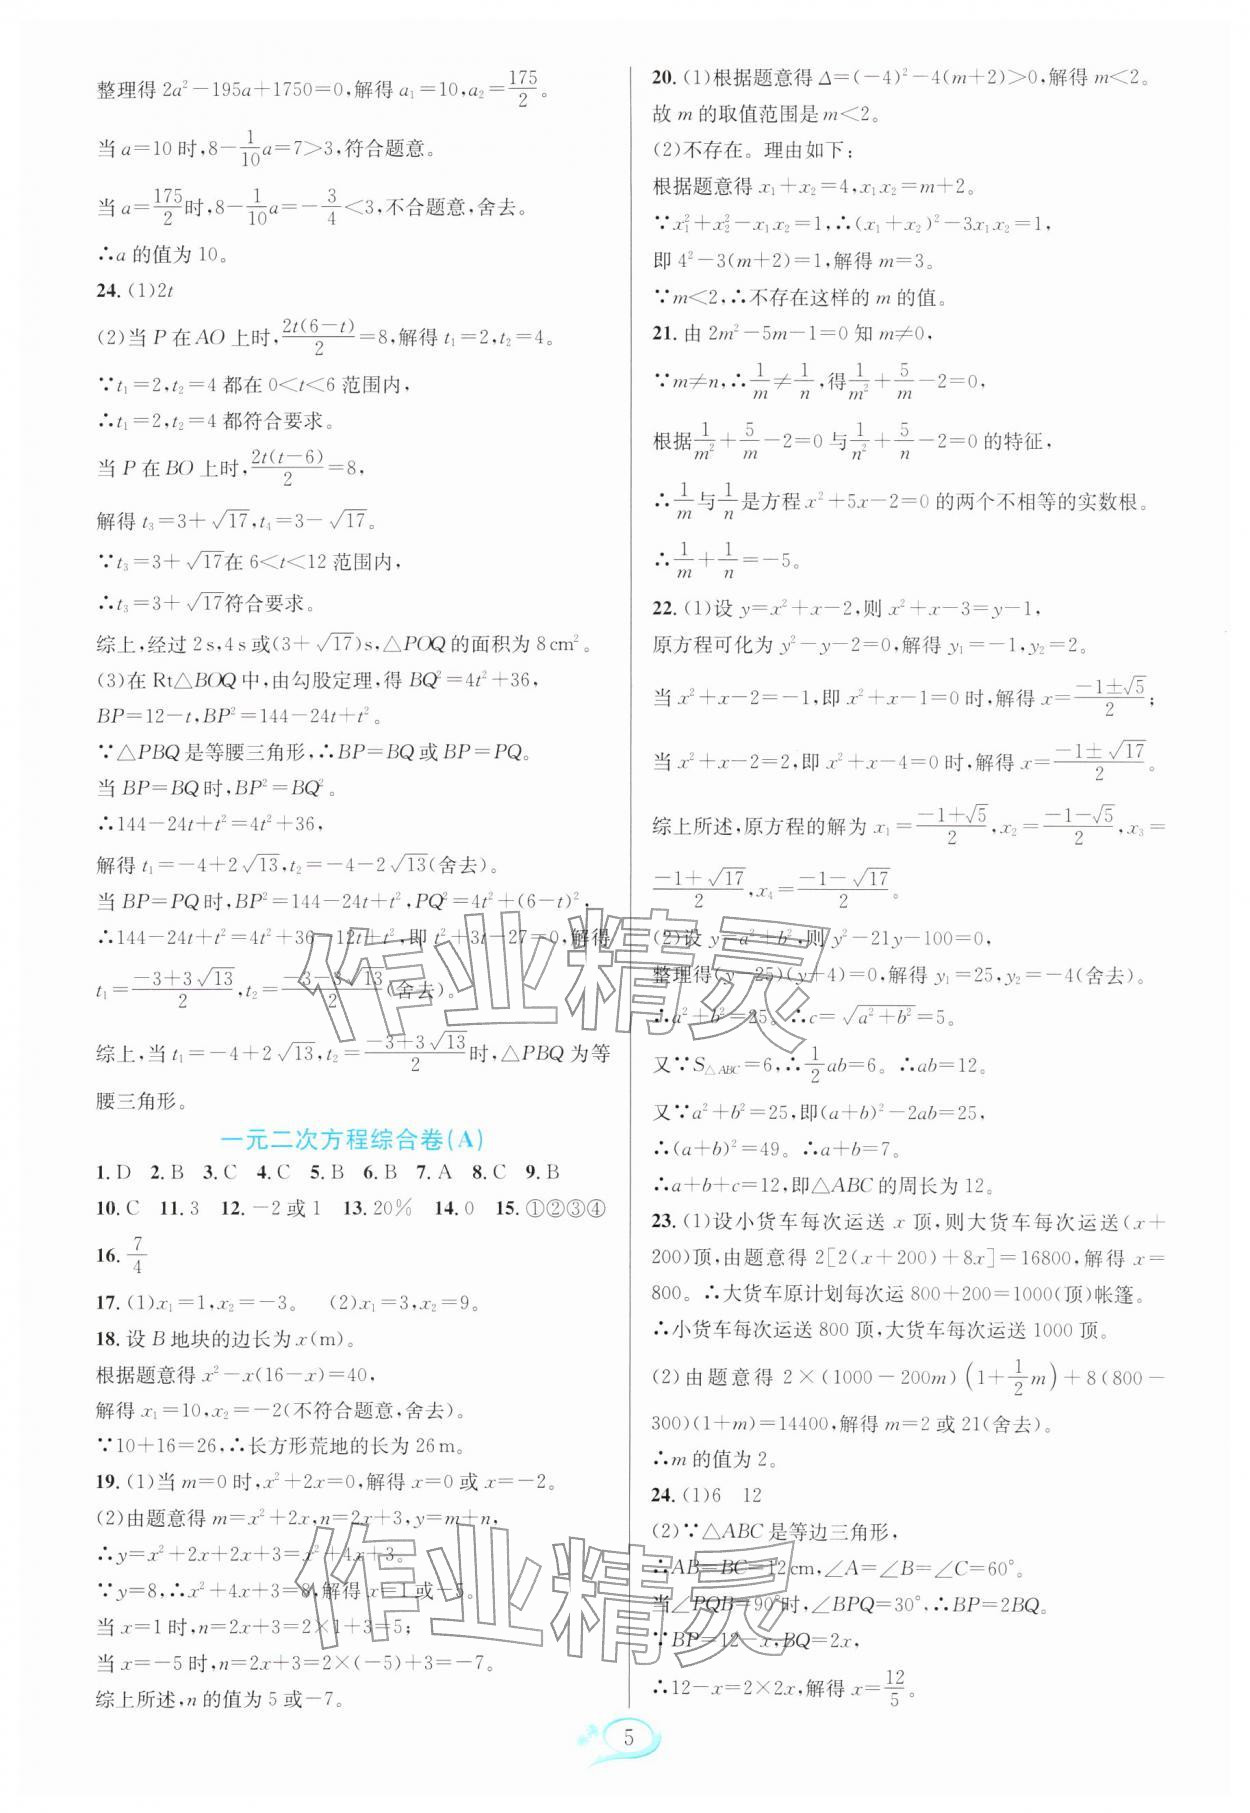 整理得 2a²－195a＋1750＝0,解得 a₁＝10,a₂＝175/2。
当 a＝10 时,8－1/10a＝7＞3,符合题意。
当 a＝175/2时,8－1/10a＝－3/4＜3,不合题意,舍去。
∴a 的值为 10。
24. (1)2t
(2)当 P 在 AO 上时,2t(6－t)/2＝8,解得 t₁＝2,t₂＝4。
∵t₁＝2,t₂＝4 都在 0＜t＜6 范围内,
∴t₁＝2,t₂＝4 都符合要求。
当 P 在 BO 上时,2t(t－6)/2＝8,
解得 t₃＝3＋√17,t₄＝3－√17。
∵t₃＝3＋√17在 6＜t＜12 范围内,
∴t₃＝3＋√17符合要求。
综上,经过 2 s,4 s 或(3＋√17)s,△POQ 的面积为 8 cm²。
(3)在 Rt△BOQ 中,由勾股定理,得 BQ²＝4t²＋36,
BP＝12－t,BP²＝144－24t＋t²。
∵△PBQ 是等腰三角形,∴BP＝BQ 或 BP＝PQ。
当 BP＝BQ 时,BP²＝BQ²。
∴144－24t＋t²＝4t²＋36,
解得 t₁＝－4＋2√13,t₂＝－4－2√13(舍去)。
当 BP＝PQ 时,BP²＝144－24t＋t²,PQ²＝4t²＋(6－t)²,
∴144－24t＋t²＝4t²＋36－12t＋t²,即 t²＋3t－27＝0,解得
t₁＝(－3＋3√13)/2,t₂＝(－3－3√13)/2(舍去)。
综上,当 t₁＝－4＋2√13,t₂＝(－3＋3√13)/2时,△PBQ 为等
腰三角形。
一元二次方程综合卷(A)
1. D 2. B 3. C 4. C 5. B 6. B 7. A 8. C 9. B
10. C 11. 3 12. －2 或 1 13. 20% 14. 0 15. ①②③④
16. 7/4
17. (1)x₁＝1,x₂＝－3。 (2)x₁＝3,x₂＝9。
18. 设 B 地块的边长为 x(m)。
根据题意得 x²－x(16－x)＝40,
解得 x₁＝10,x₂＝－2(不符合题意,舍去)。
∵10＋16＝26,∴长方形荒地的长为 26 m。
19. (1)当 m＝0 时,x²＋2x＝0,解得 x＝0 或 x＝－2。
(2)由题意得 m＝x²＋2x,n＝2x＋3,y＝m＋n,
∴y＝x²＋2x＋2x＋3＝x²＋4x＋3。
∵y＝8,∴x²＋4x＋3＝8,解得 x＝1 或－5。
当 x＝1 时,n＝2x＋3＝2×1＋3＝5;
当 x＝－5 时,n＝2x＋3＝2×(－5)＋3＝－7。
综上所述,n 的值为 5 或－7。
20. (1)根据题意得 Δ＝(－4)²－4(m＋2)＞0,解得 m＜2。
故 m 的取值范围是 m＜2。
(2)不存在。理由如下:
根据题意得 x₁＋x₂＝4,x₁x₂＝m＋2。
∵x₁²＋x₂²－x₁x₂＝1,∴(x₁＋x₂)²－3x₁x₂＝1,
即 4²－3(m＋2)＝1,解得 m＝3。
∵m＜2,∴不存在这样的 m 的值。
21. 由 2m²－5m－1＝0 知 m≠0,
∵m≠n,∴1/m≠1/n,得1/m²＋5/m－2＝0,
根据1/m²＋5/m－2＝0 与1/n²＋5/n－2＝0 的特征,
∴1/m与1/n是方程 x²＋5x－2＝0 的两个不相等的实数根。
∴1/m＋1/n＝－5。
22. (1)设 y＝x²＋x－2,则 x²＋x－3＝y－1,
原方程可化为 y²－y－2＝0,解得 y₁＝－1,y₂＝2。
当 x²＋x－2＝－1,即 x²＋x－1＝0 时,解得 x＝(－1±√5)/2;
当 x²＋x－2＝2,即 x²＋x－4＝0 时,解得 x＝(－1±√17)/2。
综上所述,原方程的解为 x₁＝(－1＋√5)/2,x₂＝(－1－√5)/2,x₃＝
(－1＋√17)/2,x₄＝(－1－√17)/2。
(2)设 y＝a²＋b²,则 y²－21y－100＝0,
整理得(y－25)(y＋4)＝0,解得 y₁＝25,y₂＝－4(舍去)。
∴a²＋b²＝25。∴c＝√(a²＋b²)＝5。
又∵S△ABC＝6,∴1/2ab＝6。∴ab＝12。
又∵a²＋b²＝25,即(a＋b)²－2ab＝25,
∴(a＋b)²＝49。∴a＋b＝7。
∴a＋b＋c＝12,即△ABC 的周长为 12。
23. (1)设小货车每次运送 x 顶,则大货车每次运送(x＋
200)顶,由题意得 2[2(x＋200)＋8x]＝16800,解得 x＝
800。∴大货车原计划每次运 800＋200＝1000(顶)帐篷。
∴小货车每次运送 800 顶,大货车每次运送 1000 顶。
(2)由题意得 2×(1000－200m)(1＋1/2m)＋8(800－
300)(1＋m)＝14400,解得 m＝2 或 21(舍去)。
∴m 的值为 2。
24. (1)6 12
(2)∵△ABC 是等边三角形,
∴AB＝BC＝12cm,∠A＝∠B＝∠C＝60°。
当∠PQB＝90°时,∠BPQ＝30°,∴BP＝2BQ。
∵BP＝12－x,BQ＝2x,
∴12－x＝2×2x,解得 x＝12/5。
5
作业精灵
作业精灵